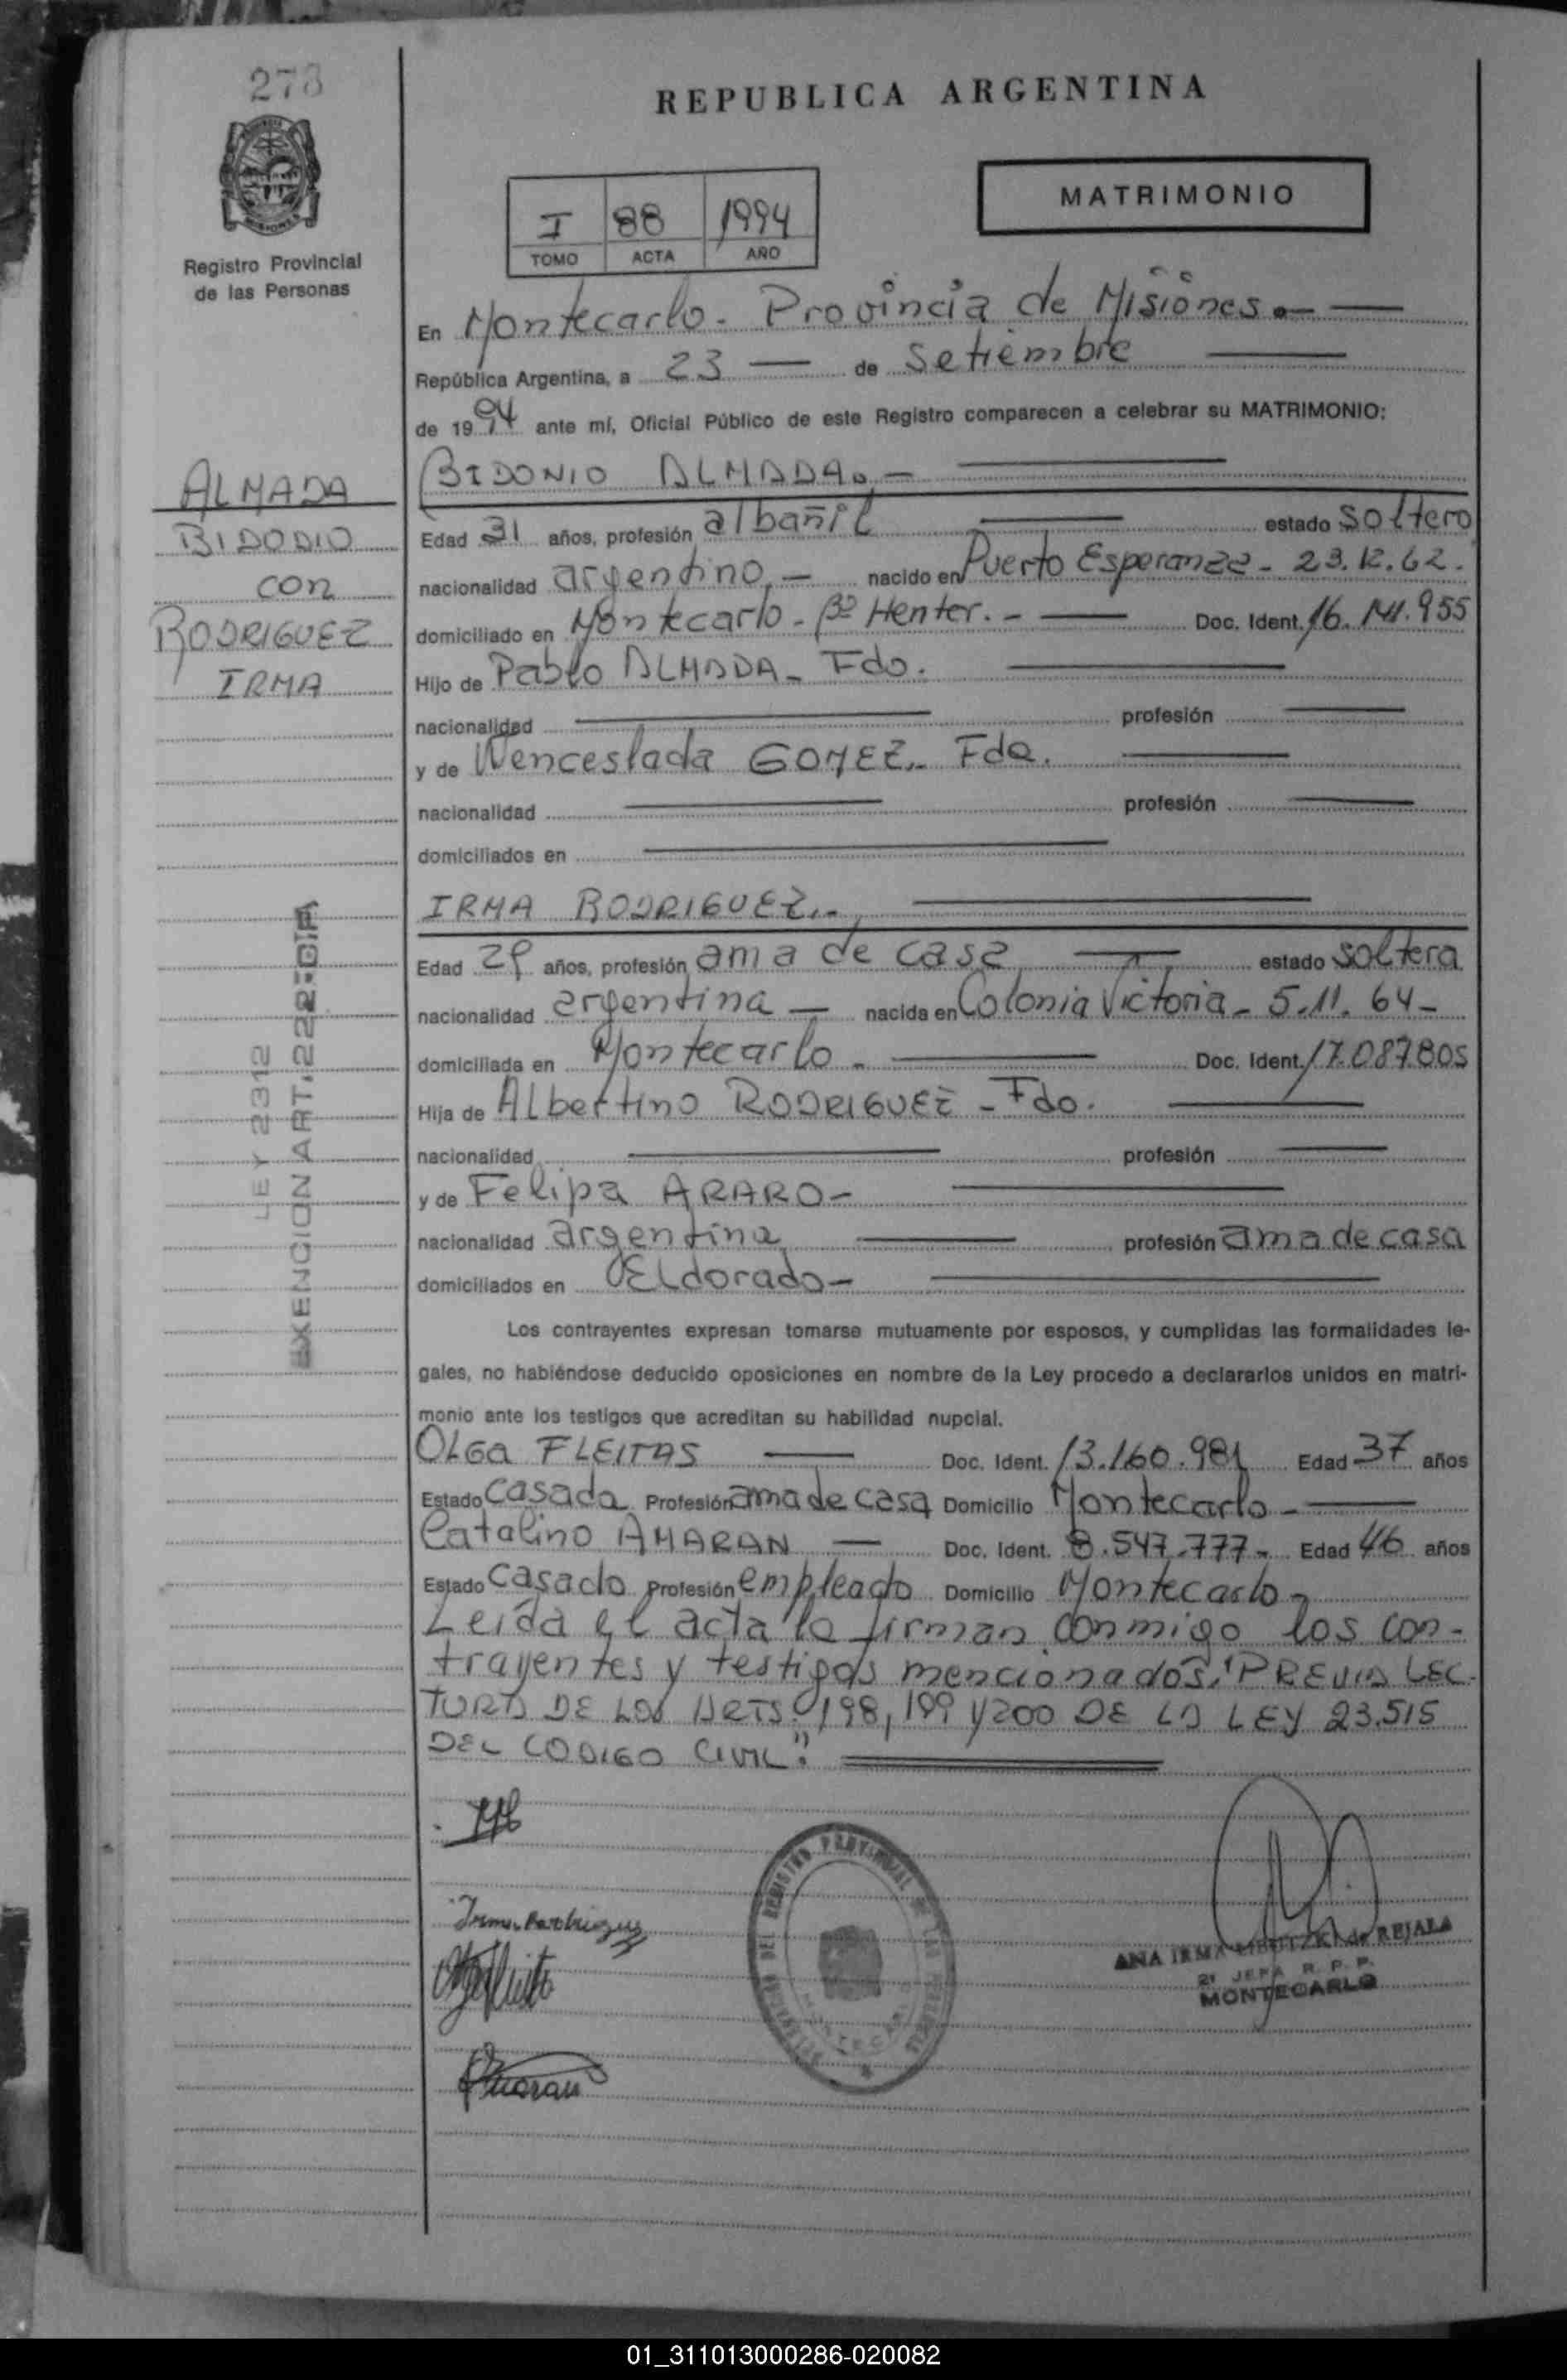 REPUBLICA ARGENTINA
MATRIMONIO
I 88 1994
TOMO ACTA AÑO
Registro Provincial
de las Personas
En Montecarlo - Provincia de Misiones.-
República Argentina, a 23 de Setiembre
de 1994 ante mí, Oficial Público de este Registro comparecen a celebrar su MATRIMONIO:
ALMADA
BIDODIO
con
RODRIGUEZ
IRMA
LEY 2312
EXENCION ART. 222
BIDONIO ALMADA.-
Edad 31 años, profesión albañil estado soltero
nacionalidad argentino.- nacido en Puerto Esperanza - 23.12.62.
domiciliado en Montecarlo - Bº Henter.- Doc. Ident. 16.141.955
Hijo de Pablo ALMADA - Fdo.
nacionalidad profesión
y de Wenceslada GOMEZ.- Fda.
nacionalidad profesión
domiciliados en
IRMA RODRIGUEZ.-
Edad 29 años, profesión ama de casa estado soltera
nacionalidad argentina - nacida en Colonia Victoria - 5.11.64-
domiciliada en Montecarlo - Doc. Ident. 17.087.805
Hija de Albertino RODRIGUEZ - Fdo.
nacionalidad profesión
y de Felipa ARARO-
nacionalidad argentina profesión ama de casa
domiciliados en Eldorado-
Los contrayentes expresan tomarse mutuamente por esposos, y cumplidas las formalidades le-
gales, no habiéndose deducido oposiciones en nombre de la Ley procedo a declararlos unidos en matri-
monio ante los testigos que acreditan su habilidad nupcial.
OLGA FLEITAS Doc. Ident. 13.160.981 Edad 37 años
Estado casada Profesión ama de casa Domicilio Montecarlo -
Catalino AMARAN - Doc. Ident. 8.547.777- Edad 46 años
Estado casado Profesión empleado Domicilio Montecarlo-
Leída el acta la firman conmigo los con-
trayentes y testigos mencionados. "PREVIA LEC-
TURA DE LOS ARTS. 198, 199 y 200 DE LA LEY 23.515
DEL CODIGO CIVIL".
Irma Rodriguez
ANA IRMA de REJALA
2º JEFA R. P. P.
MONTECARLO
01_311013000286-020082